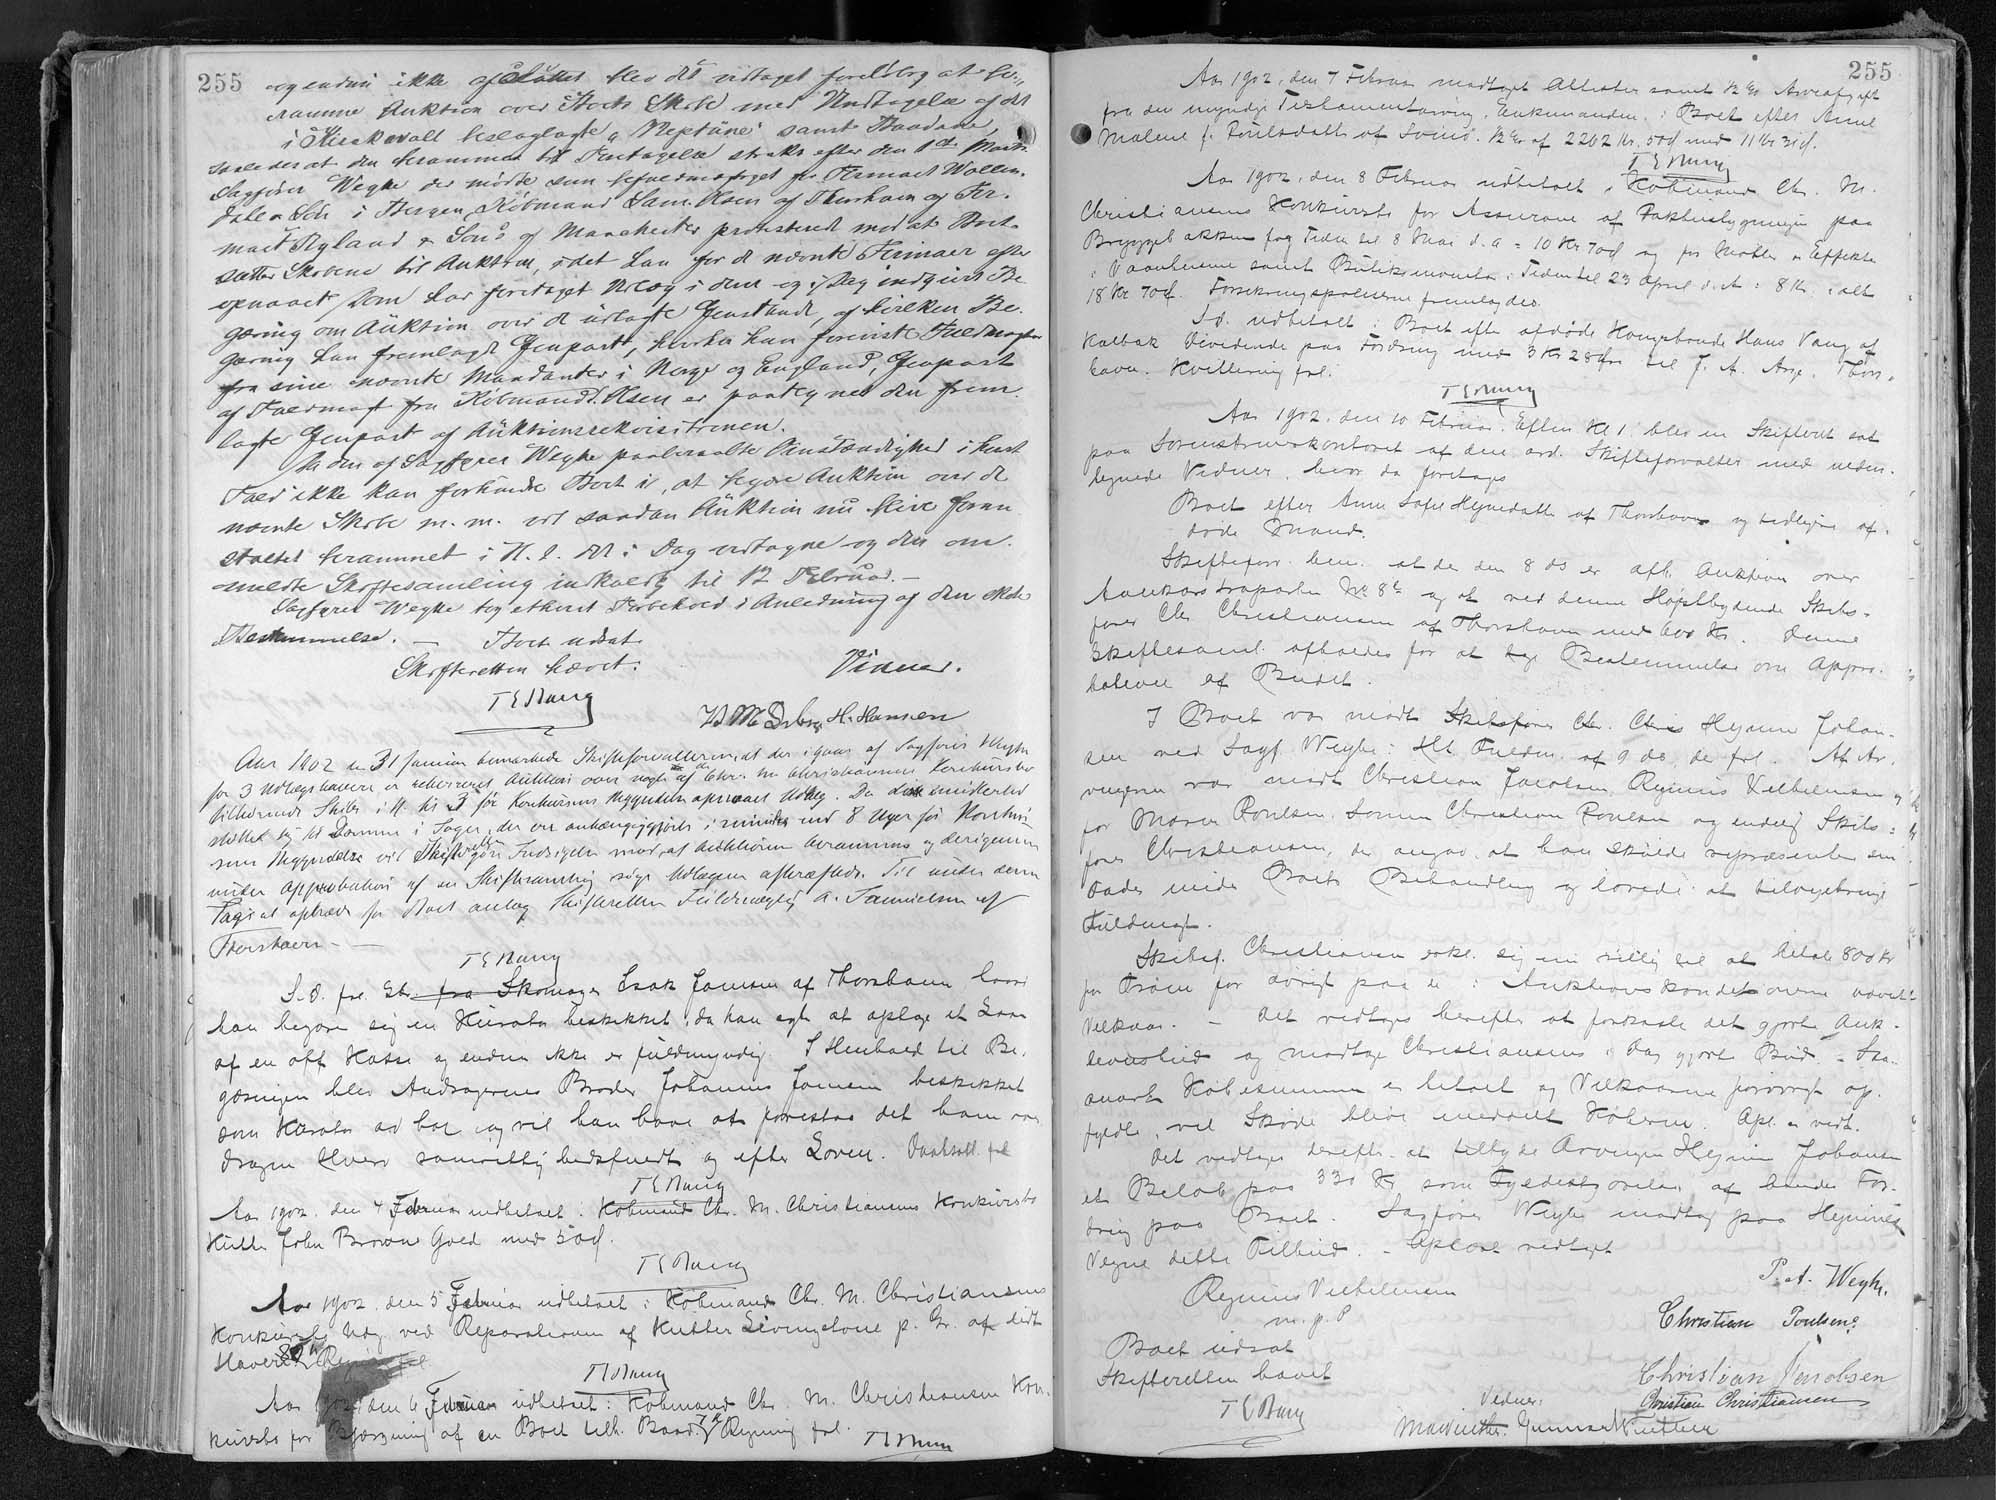 255
og endnu ikke afsluttet blev det vedtaget foreløbig at be-
ramme Auktion over Boets Skibe med Undtagelse af det
i beslaglagte "Neptune" samt Baadene,
saaledes at den berammes til Foretagelse straks efter den 1ste Marts.
Sagfører Weyhe der mødte som befuldmægtiget for Firmaet Wallen-
dahl & Søn i Bergen, Købmand Sam. Olsen af Thorshavn og Fir-
maet Ryland & Sons af Manchester protesterede mod at Boet
satte Skibene til Auktion, idet han for de nævnte Firmaer efter
opnaaet Dom har foretaget Udlæg i dem og i Dag indgivet Be
gæring om Auktion over de udlagte Genstande, af hvilken Be-
gæring han fremlagde Genpart, hvorhos han foreviste Fuldmagter
fra sine nævnte Mandanter i Norge og England, Genpart
af Fuldmagt fra Købmand S. Olsen er paategnet den frem-
lagte Genpart af Auktionsrekvisitionen.
Da den af Sagfører Weyhe paaberaabte Omstændighed i hvert
Fald ikke kan forhindre Boet i, at begære Auktion over de
nævnte Skibe m. m. vil saadan Auktion nu blive foran
staltet berammet i H. t. det i Dag vedtagne og den om-
meldte Skiftesamling indkaldt til 12 Februar. —
Sagfører Weyhe tog ethvert Forbehold i Anledning af den skete
Bestemmelse. — Boet udsat.
Skifteretten hævet. Vidner.
T E Bærg
H. Hansen
Aar 1902 d 31 Januar bemærkede Skifteforvalteren, at der igaar af Sagfører Weyhe
for 3 Udlægshavere er rekvireret Auktion over nogle af de Chr. M. Christiansens Konkursbo
tilhørende Skibe i H. til 3 før Konkursens Begyndelse opnaaet Udlæg. Da dette imidlertid
støttet sig til Domme i Sager, der ere anhængiggjorte i mindre end 8 Uger før Konkur
sens Begyndelse vil Skifteretten gøre Indsigelse mod, at Auktionen berammes og derigennem
under Approbation af en Skiftesamling søge Udlægene afkræftede. Til under denne
Sag at optræde for Boet antog Skifteretten Fuldmægtig A. Samuelsen af
Thorshavn —
T E Bærg
S. D. frl. Skr. fra Skomager Isak Joensen af Thorshavn hvori
han begærer sig en Kurator beskikket, da han agter at optage et Laan
af en off Kasse og endnu ikke er fuldmyndig. I Henhold til Be-
gæringen blev Andragerens Broder Johannes Joensen beskikket
som Kurator ad hoc og vil han have at forestaa det ham over
dragne Hverv samvittighedsfuldt og efter Loven.
T E Bærg
Aar 1902 den 4 Februar udbetalt i Købmand Chr. M. Christiansens Konkursbo
Kutter John Brown Gæld med 50 Ø.
T E Bærg
Aar 1902 den 5 Februar udbetalt i Købmand Chr. M. Christiansens
Konkursbo Udg. ved Reparationen af Kutter Livingstone p. Gr. af lidt
Haveri Regning frl
T E Bærg
Aar 1902 den 6 Februar udbetalt i Købmand Chr. M. Christiansens Kon-
kursbo for Bjærgning af en Boet tilh. Baad. Regning frl. T E Bærg
255
Aar 1902, den 7 Februar modtoget Attester samt ½ % Arveafgift
fra den myndige Testamentsarving, Enkemanden, i Boet efter Anne
Malene f. Poulsdatter af . ½ % af 2262 Kr. 50 Ø med 11 Kr 31 Ø.
T E Bærg
Aar 1902, den 8 Februar udbetalt i Købmand Chr. M.
Christiansens Konkursbo for Assurance af Pakhusbygningen paa
Bryggebakken for Tiden til 8 Mai d. A = 10 Kr 70 Ø og for Møbler & Effekter
i Vaaningerne samt Butiksinventar i Tiden til 23 April d. A = 8 Kr. i alt
18 Kr 70 Ø. Forsikringspoliserne fremlagdes.
S. D. udbetalt i Boet efter afdøde Kongsbonde Hans Vang af
Kalbak Dividende paa Fordring med 3 Kr 28 Øre til J. A. . Thors-
havn. Kvittering frl.
T E Bærg
Aar 1902, den 10 Februar. Efterm. Kl 1 blev en Skifteret sat
paa Sorenskriverkontoret af den ord. Skifteforvalter med neden-
tegnede Vidner, hvor da foretoges
Boet efter Anne Sofie Hejnesdatter af Thorshavn og tidligere af-
døde Mand.
Skifteforv. bem. at der den 8 ds er afh. Auktion over
No 8 og at ved denne Højstbydende Skibs-
fører Chr Christiansen af Thorshavn med 600 Kr. Denne
Skiftesaml. afholdes for at tage Bestemmelse om Appro-
bation af Budet.
I Boet var mødt Skibsfører Chr. Hejnne Johan-
sen ved Sagf. Weyhe i Hht Fuldm. af 9 ds, der frl. Af Ar-
vingerne var mødt Christian Jacobsen, Regnus Vilhelmsen og
for Maren Poulsen, Sønnen Christian Poulsen og endelig Skibs-
fører Christiansen, der angav at han skulde repræsentere sin
Fader under Boets Behandling og lovede at tilvejebringe
Fuldmagt.
Skibsf. Christiansen erkl. sig nu villig til at betale 800 Kr
for for øvrigt paa de i Auktionskonditionerne nævnte
Vilkaar. — Det vedtoges herefter at forkaste det gjorte Auk-
tionsbud og modtage Christiansens i Dag gjorte Bud. — Saa-
snart Købesummen er betalt og Vilkaarene forøvrigt op-
fyldte, vil Skøde blive meddelt Køberen. Opl. & vedt.
Det vedtoges derefter at tilbyde Arvingen Hejnne Johansen
et Beløb paa 330 Kr som Fyldestgørelse af hendes For-
dring paa Boet. Sagfører Weyhe modtog paa Hejnnes
Vegne dette Tilbud. — Oplæst vedtaget
P. A. Weyhe.
Regnus Vilhelmsen
m. p. P
Christian Poulsen
Boet udsat
Skifteretten hævet
Christian Jacobsen
T E Bærg
Vidner:
Christian Christiansen